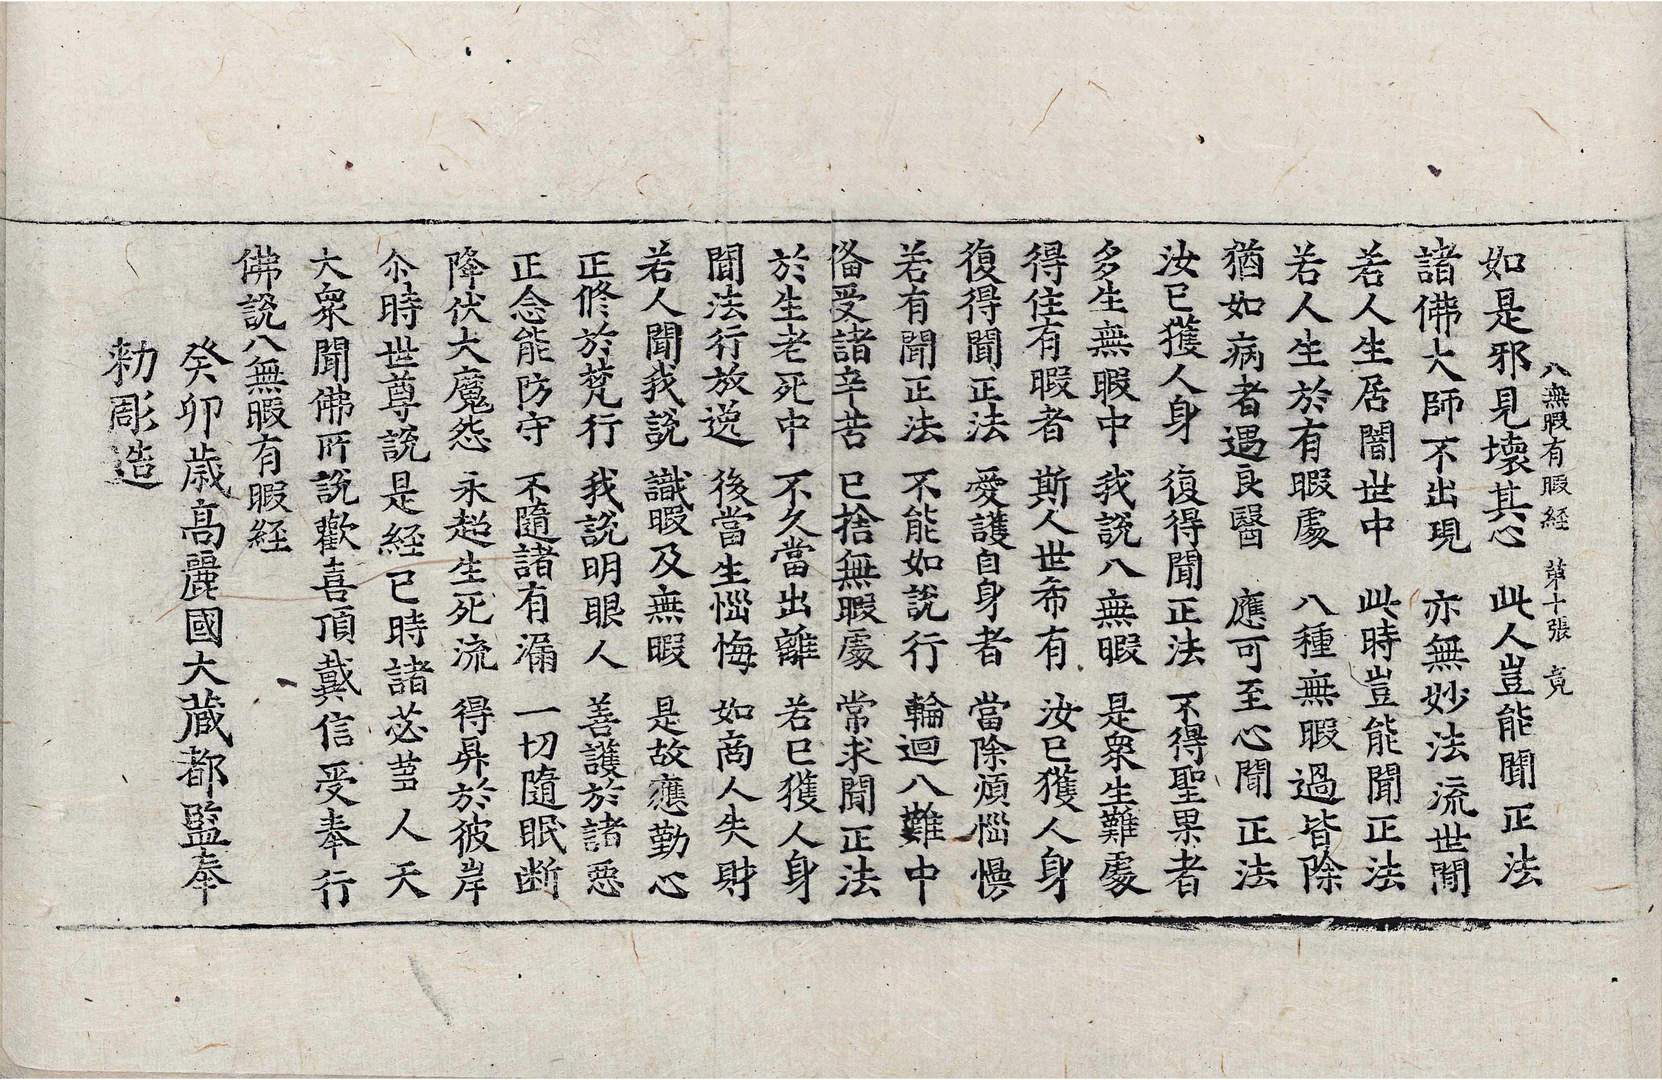 八無暇有暇経 第十張 竟
如是邪見壞其心 此人豈能聞正法
諸佛大師不出現 亦無妙法流世間
若人生居闇世中 此時豈能聞正法
若人生於有暇處 八種無暇過皆除
猶如病者遇良醫 應可至心聞正法
汝已獲人身 復得聞正法 不得聖果者
多生無暇中 我說八無暇 是衆生難處
得住有暇者 斯人世希有 汝已獲人身
復得聞正法 愛護自身者 當除煩惱慢
若有聞正法 不能如說行 輪迴八難中
俻受諸辛苦 已捨無暇處 常求聞正法
於生老死中 不久當出離 若已獲人身
聞法行放逸 後當生惱悔 如商人失財
若人聞我說 識暇及無暇 是故應勤心
正修於梵行 我說明眼人 善護於諸惡
正念能防守 不隨諸有漏 一切隨眠斷
降伏大魔怨 永超生死流 得昇於彼岸
尒時世尊說是経已時諸苾芻人天
大衆聞佛所說歡喜頂戴信受奉行
佛說八無暇有暇経
癸卯歲高麗國大藏都監奉
勑彫造